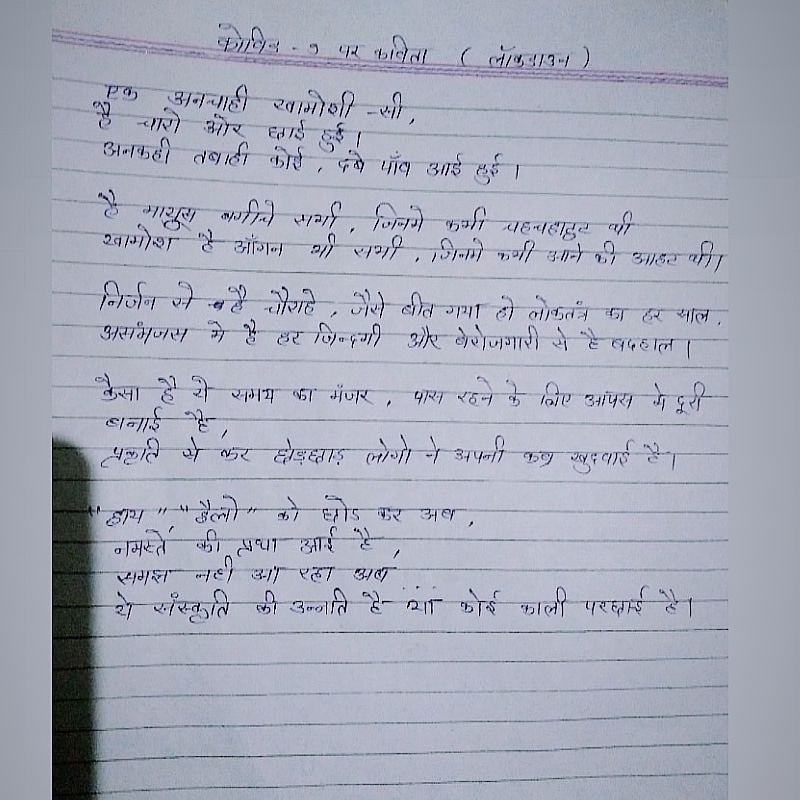 कोविड - 9 पर कविता ( लॉकडाउन )
एक अनचाही खामोशी -सी,
है चारो ओर छाई हुई।
अनकही तबाही कोई, दबे पाँव आई हुई।
है मायूस बगीचे सभी, जिनमे कभी चहचहाहट थी
खामोश है आँगन भी सभी, जिनमे कभी आने की आहट थी।
निर्जन से है चौराहे, जैसे बीत गया हो लोकतंत्र का हर साल,
असंमजस मे है हर जिन्दगी और बेरोजगारी से है बदहाल।
कैसा है ये समय का मंजर, पास रहने के लिए आपस मे दूरी
बनाई है,
प्रकृति से कर छोड़छाड़ लोगो ने अपनी कब्र खुदवाई है।
"हाय", "हैलो" को छोड कर अब,
नमस्ते की प्रथा आई है,
समझ नही आ रहा अब ...
ये संस्कृति की उन्नति है या कोई काली परछाई है।